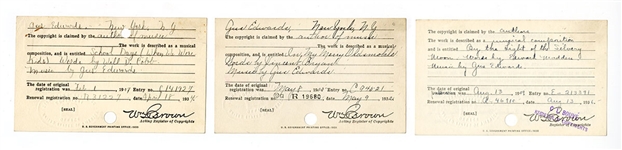 Gus Edwards, New York, N.Y.
The copyright is claimed by the author of music
The work is described as a musical
composition, and is entitled School Days (When We Were
Kids) Words by Will D. Cobb
Music by Gus Edwards
The date of original
registration was Feb 1
Entry No.
Renewal registration No.
dated
(SEAL)
Wm Brown
Acting Register of Copyrights
U. S. GOVERNMENT PRINTING OFFICE
Gus Edwards, New York, N.Y.
The copyright is claimed by the author of music
The work is described as a musical
composition, and is entitled In My Merry Oldsmobile
Words by Vincent Bryant
Music by Gus Edwards
The date of original
registration was May 8
Entry No.
Renewal registration No. R 19680
dated May 9
(SEAL)
Wm Brown
Acting Register of Copyrights
U. S. GOVERNMENT PRINTING OFFICE
The copyright is claimed by the authors
The work is described as a musical composition
and is entitled By the Light of the Silvery
Moon. Words by Edward Madden
Music by Gus Edwards.
The date of original
was Aug 13
Entry No.
Renewal registration No.
dated Aug 13
(SEAL)
Wm Brown
U. S. GOVERNMENT PRINTING OFFICE